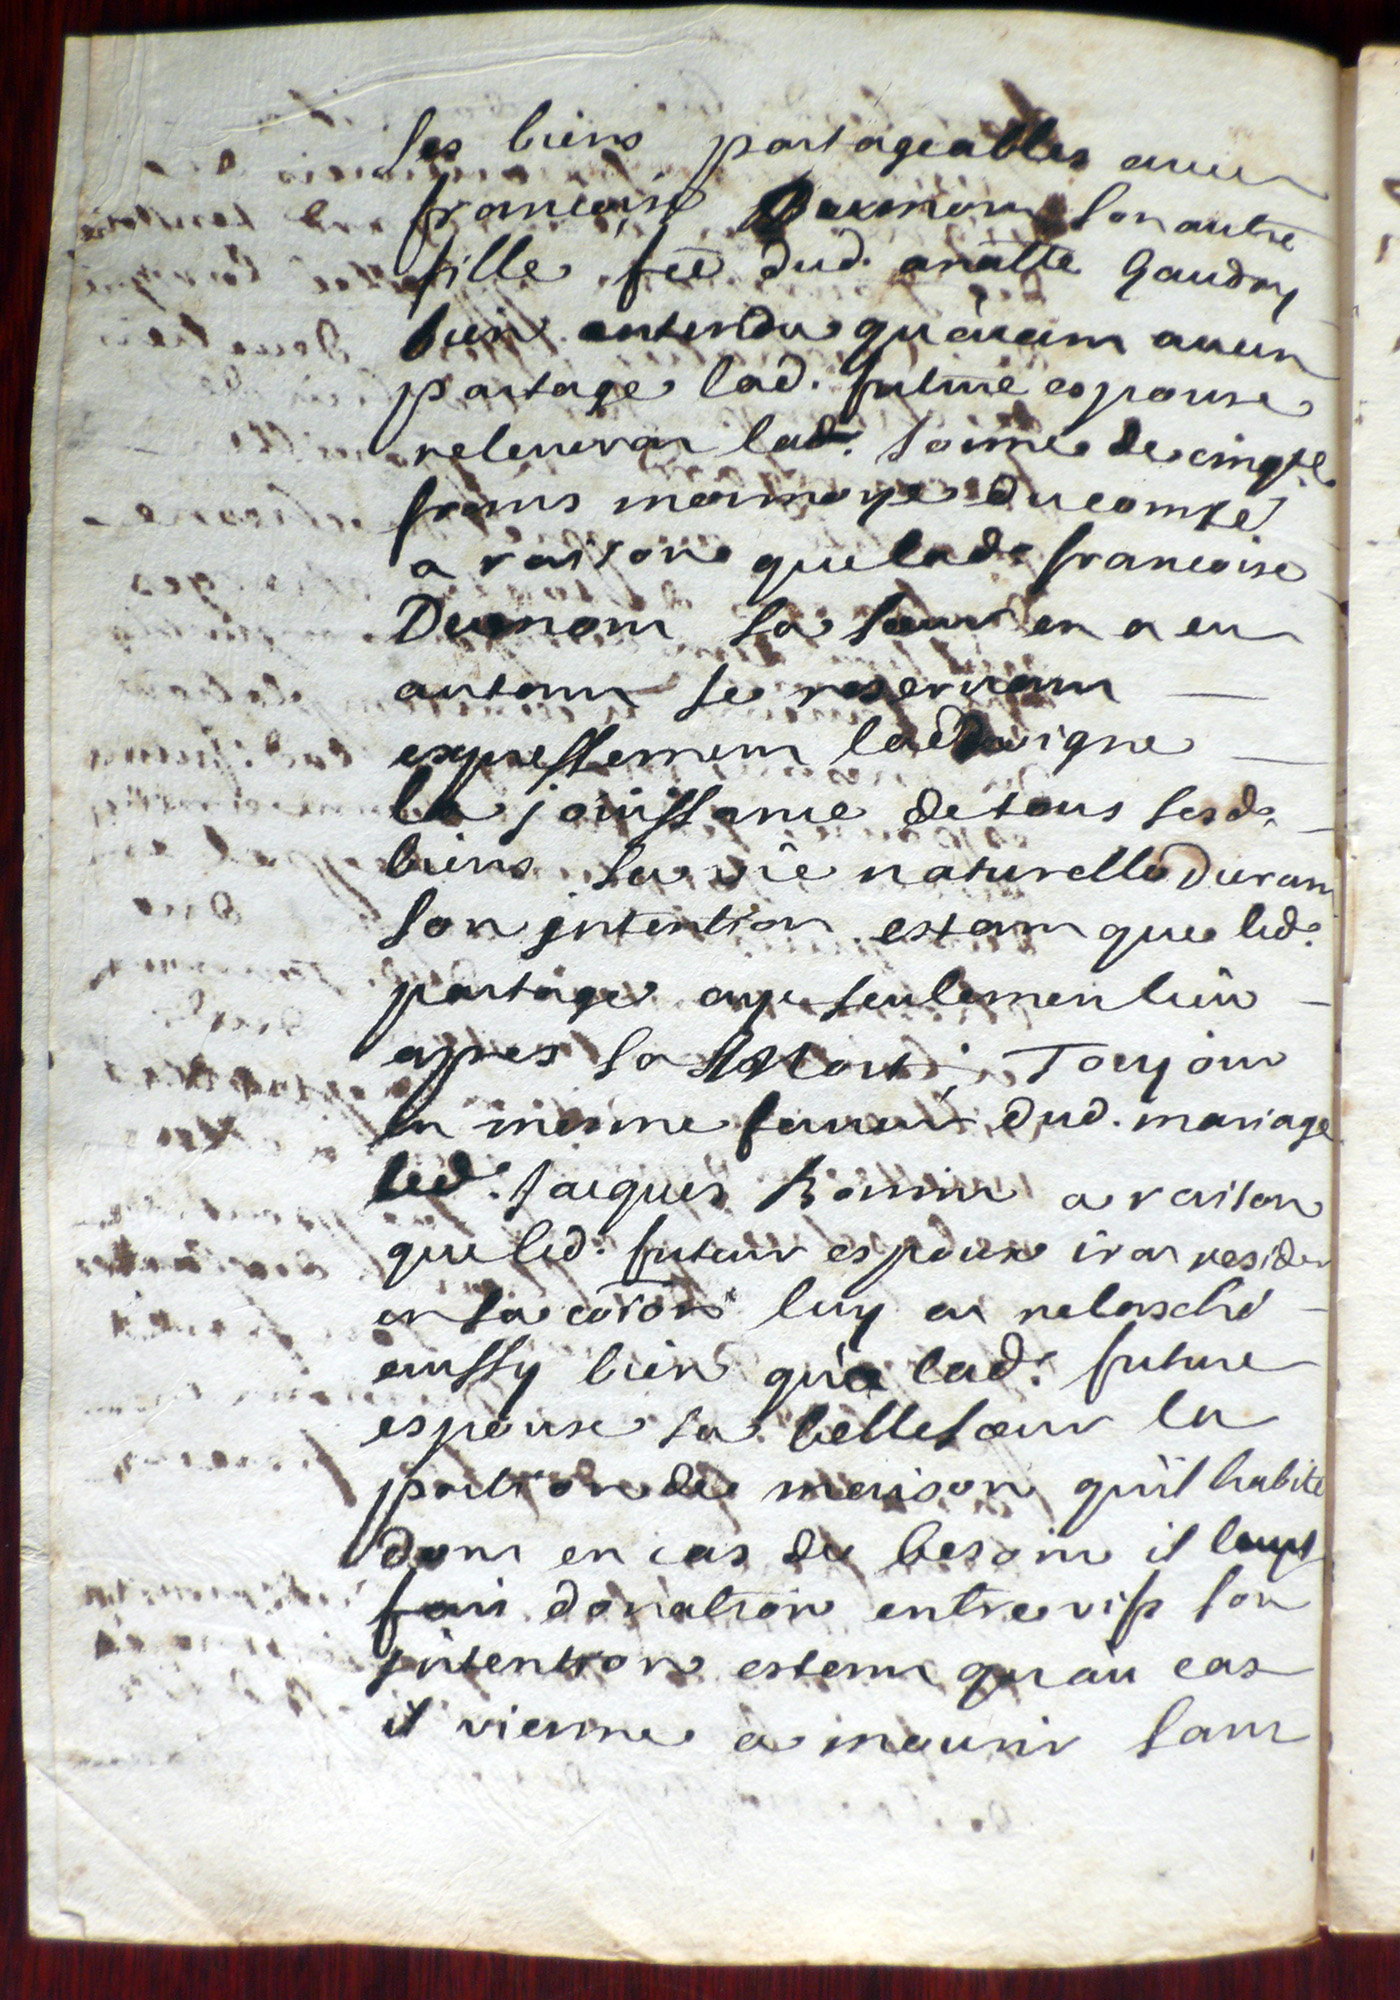 ses biens partageables avec
francoise Dumon son autre
fille fēe dud. anatlle Gaudry
bien entendu qu'avam aucun
partage lad. future espouse
releuera lad. some de cinqte
frans monnoye du comté
a raison que lad. francoise
Dumom sa sœur en a eu
autam se reservam
expressemem lad. Davigne
la jouissance de tous sesd.
biens sa vie naturelle duram
son intention estam que led.
partage aye seulemen lieu
apres sa Mort; Toujour
en mesme faveur dud. mariage
led. Jacques Bonnin a raison
que led. futeur espoux ira resider
en sa cōıōn luy a relasché
aussy bien qu'a lad. future
espouse sa belle sœur la
portion de maison qu'il habite
dom en cas de besoin il leurs
fair donation entre vifs son
intention estem qu'au cas
il vienne a mourir sam